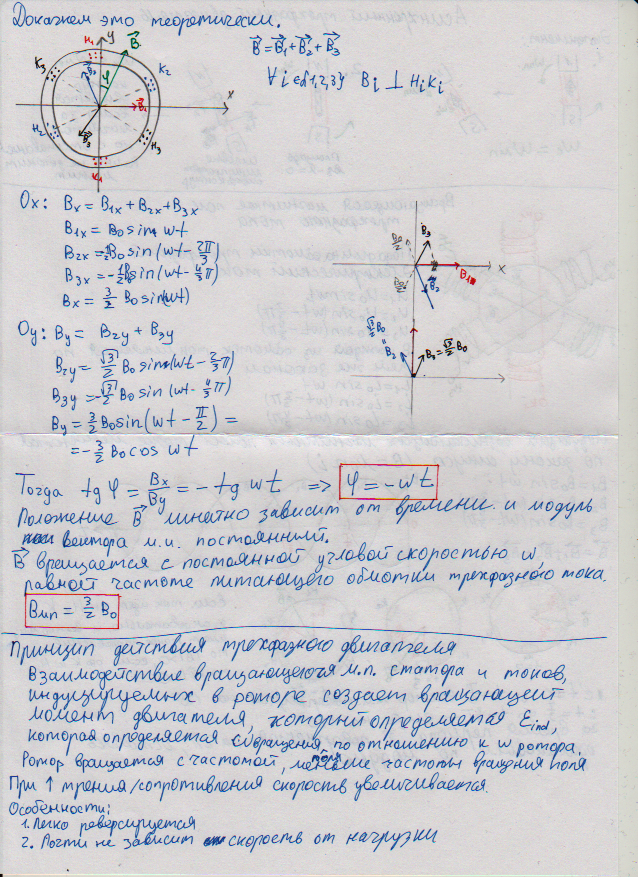 Докажем это теоретически.
B⃗ = B⃗₁ + B⃗₂ + B⃗₃
∀ i ∈ {1,2,3} Bᵢ ⊥ HᵢKᵢ
H₁ y B⃗
K₃ B₂ φ K₂
B⃗₁ x
H₂ B⃗₃ H₃
K₁
Ox: Bₓ = B₁ₓ + B₂ₓ + B₃ₓ
B₁ₓ = B₀ sin wt
B₂ₓ = -½B₀ sin(wt - 2π/3)
B₃ₓ = -½B₀ sin(wt - 4/3 π)
Bₓ = 3/2 B₀ sin(wt)
B₀/2 B₃
B₁ x
B₀/2 B₂
Oy: By = B₂y + B₃y
B₂y = √3/2 B₀ sin(wt - 2/3 π)
B₃y = -√3/2 B₀ sin(wt - 4/3 π)
By = 3/2 B₀ sin(wt - π/2) =
= -3/2 B₀ cos wt
√3/2 B₀ = B₂
B₃ = √3/2 B₀
Тогда tg φ = Bₓ/By = -tg wt => φ = -wt
Положение B⃗ линейно зависит от времени и модуль
вектора м.и. постоянний.
B⃗ вращается с постоянной угловой скоростью w,
равной частоте питающего обмотки трехфазного тока.
Bмп = 3/2 B₀
Принцип действия трехфазного двигателя
Взаимодействие вращающегося м.п. статора и токов,
индуцируемых в роторе создает вращающеий
момент двигателя, который определяется Ɛind,
которая определяется w вращения по отношению к w ротора.
Ротор вращается с частотой, меньше частоты вращения поля
поля
При ↑ трения/сопротивления скорость увеличивается.
Особенности:
1. Легко реверсируется
2. Почти не зависит скорость от нагрузки